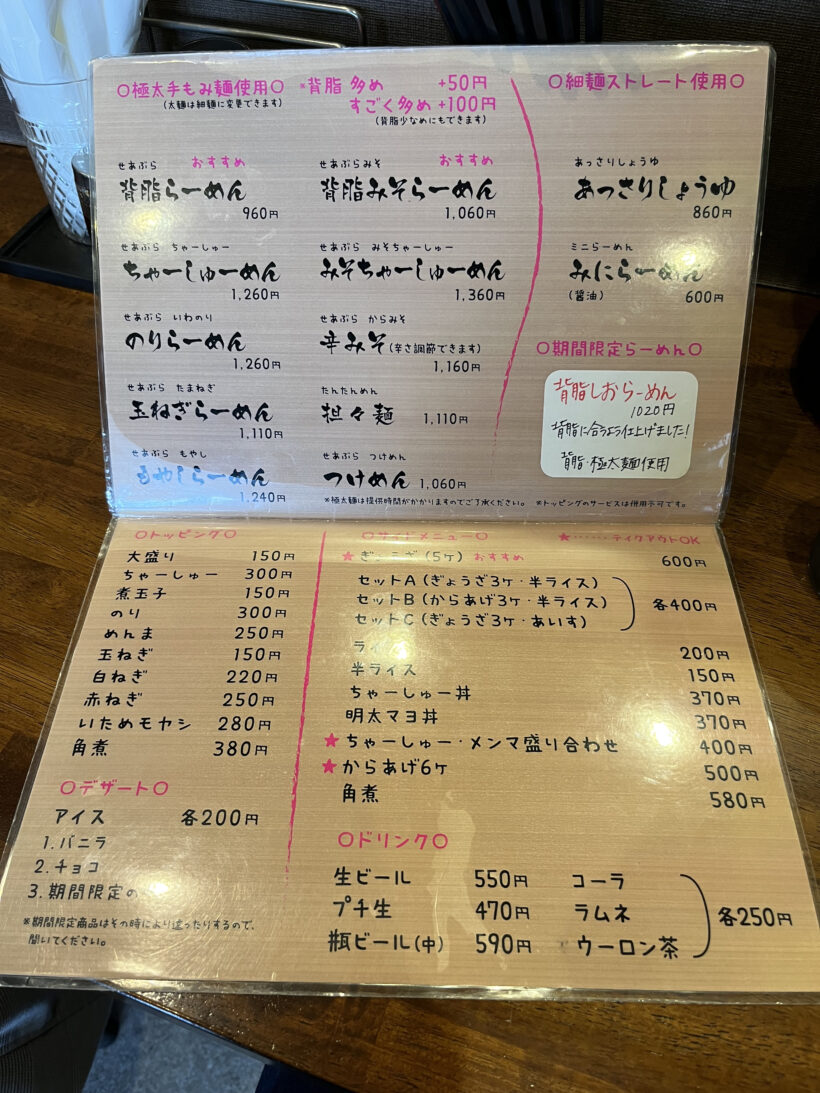 ○極太手もみ麺使用○
(太麺は細麺に変更できます)
※背脂 多め +50円
すごく多め +100円
(背脂少なめにもできます)
せあぶら おすすめ
背脂らーめん
960円
せあぶら ちゃーしゅー
ちゃーしゅーめん
1,260円
せあぶら いわのり
のりらーめん
1,260円
せあぶら たまねぎ
玉ねぎらーめん
1,110円
せあぶら もやし
もやしらーめん
1,240円
せあぶらみそ おすすめ
背脂みそらーめん
1,060円
せあぶら みそちゃーしゅー
みそちゃーしゅーめん
1,360円
せあぶら からみそ
辛みそ(辛さ調節できます)
1,160円
たんたんめん
担々麺 1,110円
せあぶら つけめん
つけめん 1,060円
※極太麺は提供時間がかかりますのでご了承ください。 ※トッピングのサービスは併用不可です。
○細麺ストレート使用○
あっさりしょうゆ
あっさりしょうゆ
860円
ミニらーめん
みにらーめん
(醤油) 600円
○期間限定らーめん○
背脂しおらーめん
1020円
背脂に合うよう仕上げました!
背脂・極太麺使用
○トッピング○
大盛り 150円
ちゃーしゅー 300円
煮玉子 150円
のり 300円
めんま 250円
玉ねぎ 150円
白ねぎ 220円
赤ねぎ 250円
いためモヤシ 280円
角煮 380円
○デザート○
アイス 各200円
1.バニラ
2.チョコ
3.期間限定の
※期間限定商品はその時により違ったりするので、
聞いてください。
○サイドメニュー○ ★……テイクアウトOK
★ぎょうざ(5ケ) おすすめ 600円
セットA(ぎょうざ3ケ・半ライス)
セットB(からあげ3ケ・半ライス) 各400円
セットC(ぎょうざ3ケ・あいす)
ライス 200円
半ライス 150円
ちゃーしゅー丼 370円
明太マヨ丼 370円
★ちゃーしゅー・メンマ盛り合わせ 400円
★からあげ6ケ 500円
角煮 580円
○ドリンク○
生ビール 550円 コーラ
プチ生 470円 ラムネ 各250円
瓶ビール(中) 590円 ウーロン茶